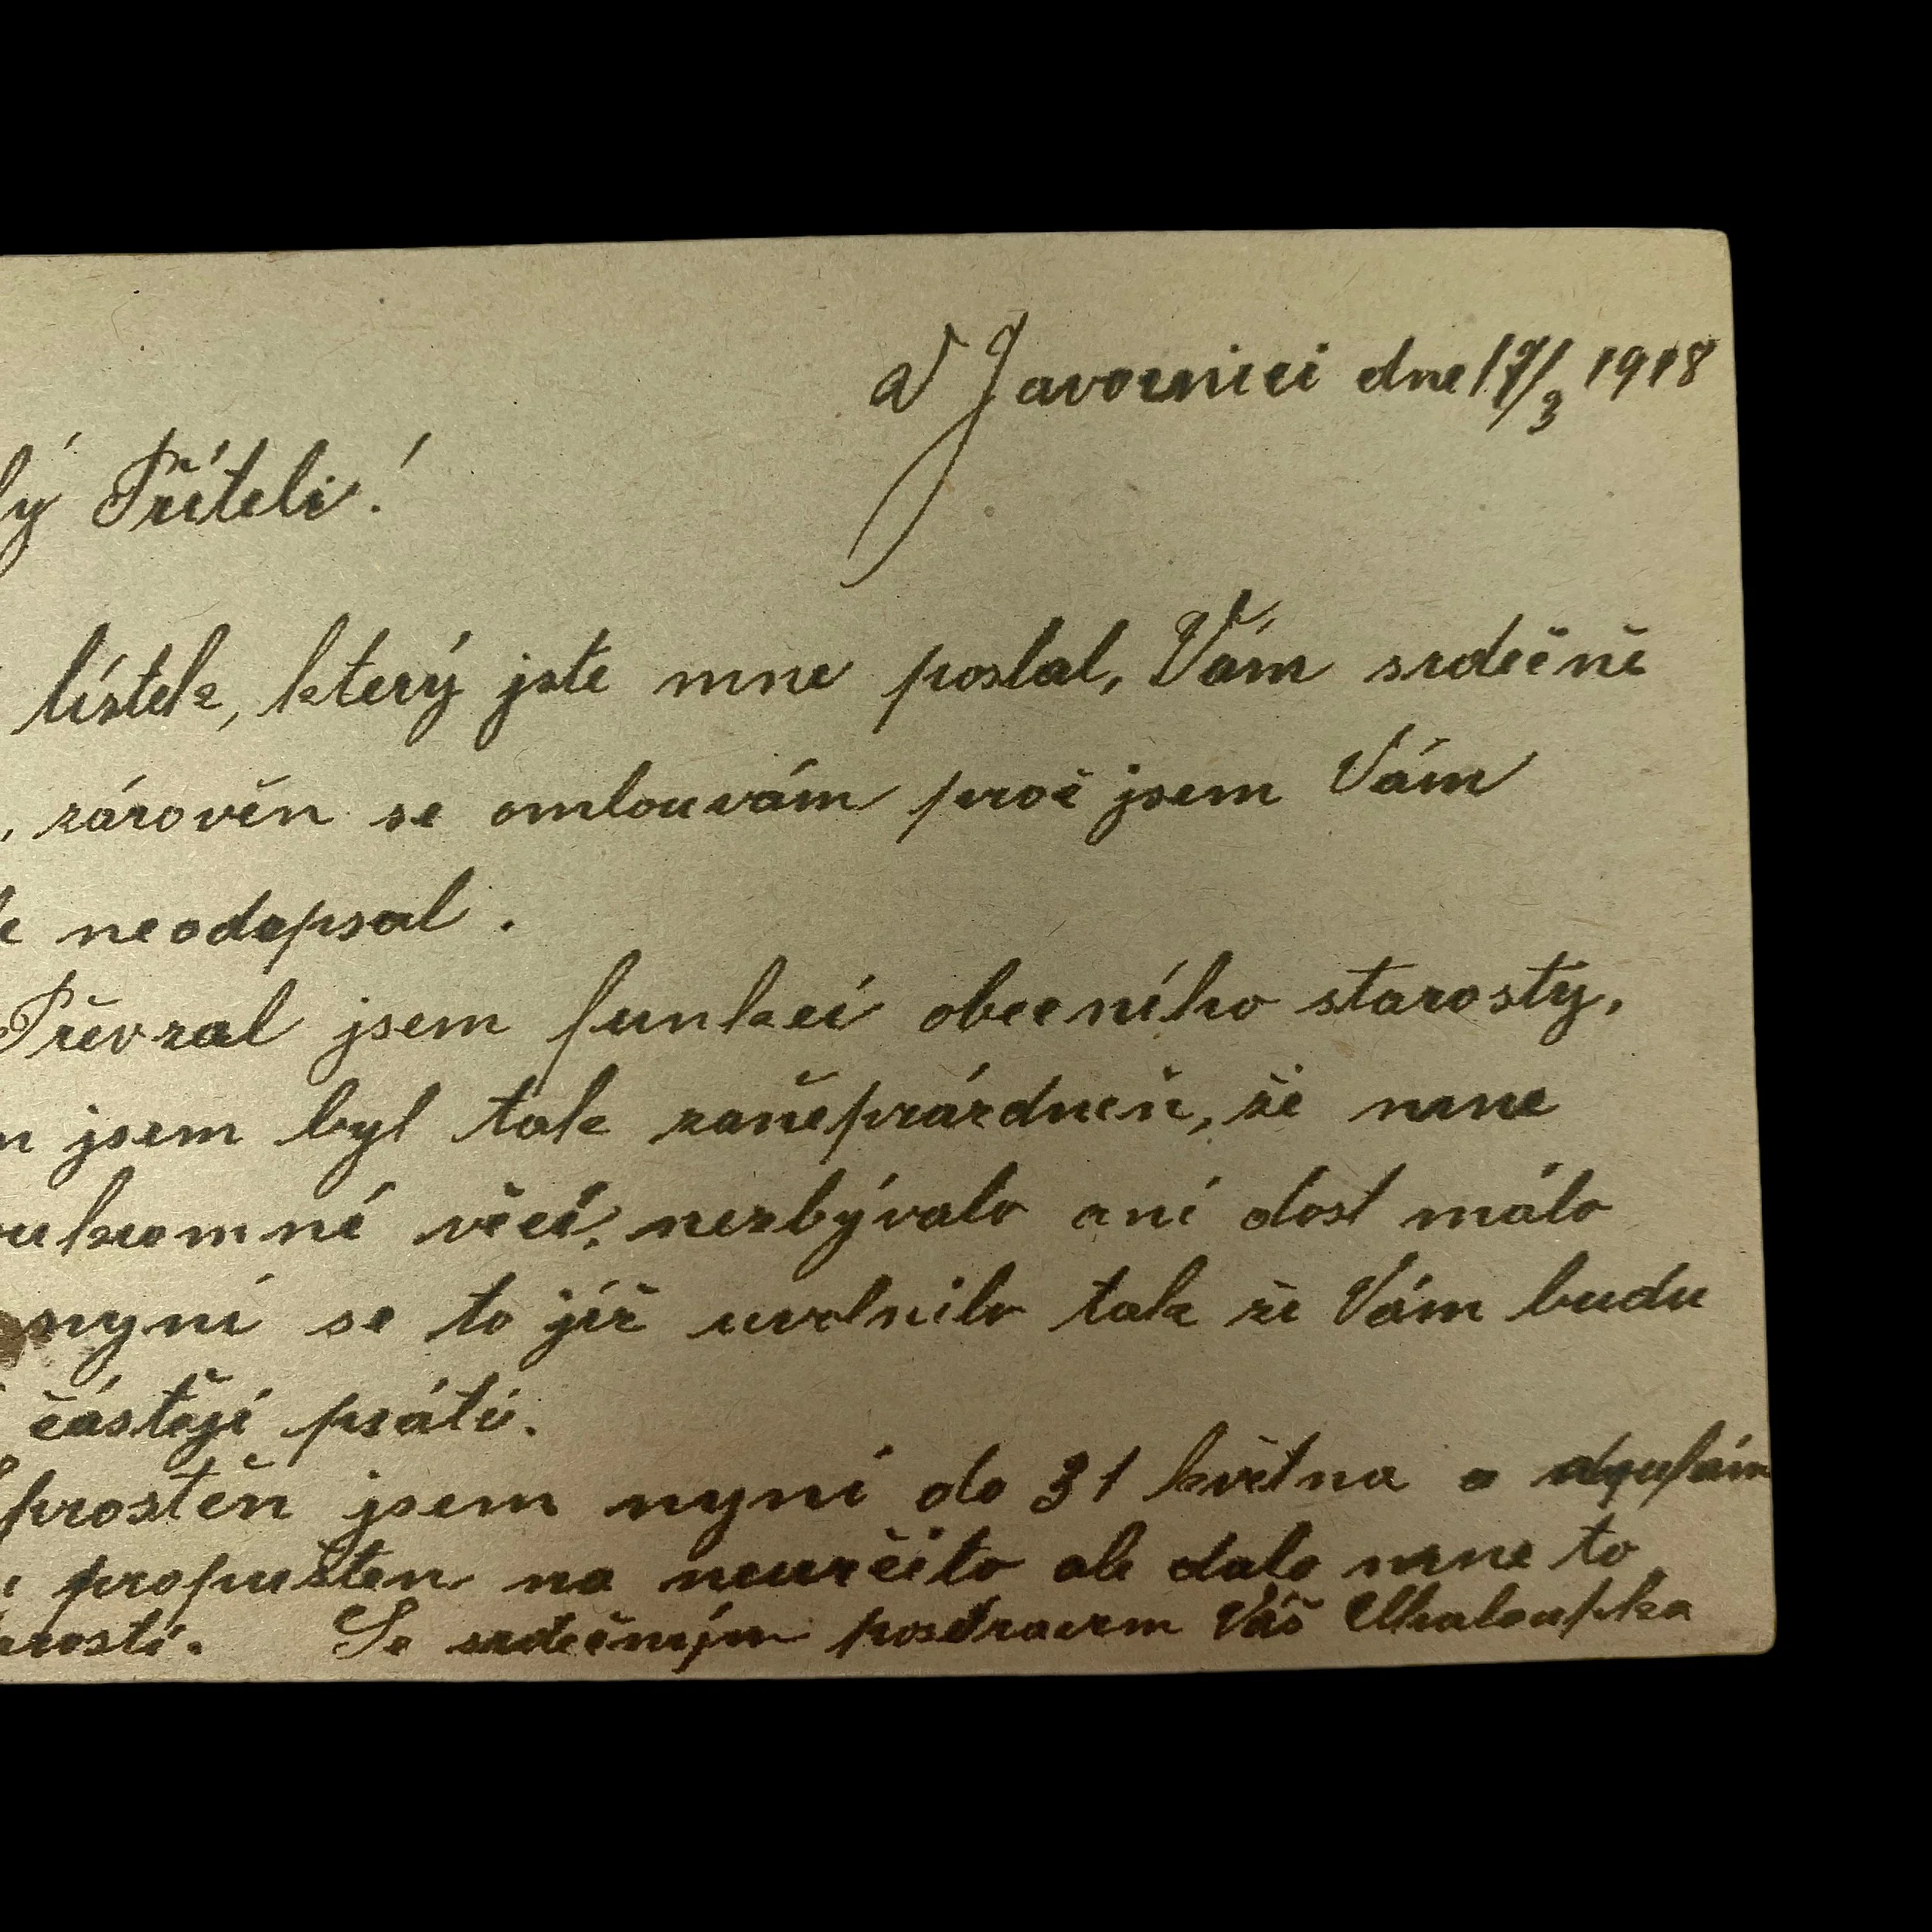 V Javornici dne 17/3 1918
lý Příteli!
lístek, který jste mne poslal, Vám srdečně
, zárovĕn se omlouvám proč jsem Vám
neodepsal.
Převzal jsem funkci obecního starosty,
jsem byl tak zaneprázdněn, že mne
věcí, nezbývalo ani dost málo
nyní se to již uvolnilo tak že Vám budu
častěji psáti.
prostěn jsem nyní do 31 května a doufám
propuštěn na neurčito ale dalo mne to
rosti. Se srdečným pozdravem Váš Chaloupka